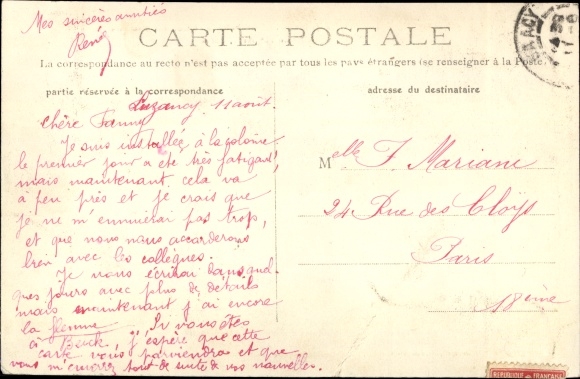 Mes sincères amitiés
Renée
CARTE POSTALE
La correspondance au recto n'est pas acceptée par tous les pays étrangers (se renseigner à la Poste.
partie réservée à la correspondance
adresse du destinataire
Luzancy 11 août.
Chère Fanny
Je suis installée à la colonie
le premier jour a été très fatigant
mais maintenant cela va
à peu près et je crois que
je ne m'ennuierai pas trop,
et que nous nous accorderons
bien avec les collègues.
Je vous écrirai dans quel-
ques jours avec plus de détails
mais maintenant j'ai encore
la flemme. Si vous êtes
à Berck, j'espère que cette
carte vous parviendra et que
vous m'enverrez tout de suite de vos nouvelles.
Melle F. Mariani
24 Rue des Cloÿs
Paris
18ème
REPUBLIQUE FRANÇAISE